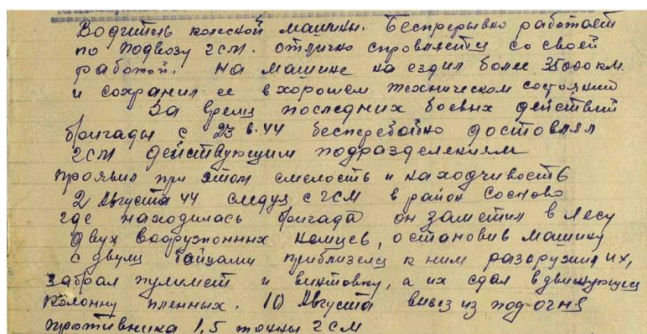 Водитель колесной машины. Беспрерывно работает
по подвозу гсм. отлично справляется со своей
работой. На машине на ездил более 35000 км.
и сохранил ее в хорошем техническом состоянии
За время последних боевых действий
бригады с 23.6.44 бесперебойно доставлял
гсм действующим подразделениям
проявил при этом смелость и находчивость
2 Августа 44 следуя с ГСМ в район Сосново
где находилась бригада он заметил в лесу
двух вооружонных немцев, остановив машину
с двумя бойцами приблизился к ним разоружил их,
забрал пулимет и винтовку, а их сдал в движущуюся
колонну пленных. 10 Августа вывез из под огня
противника 1,5 тонны гсм